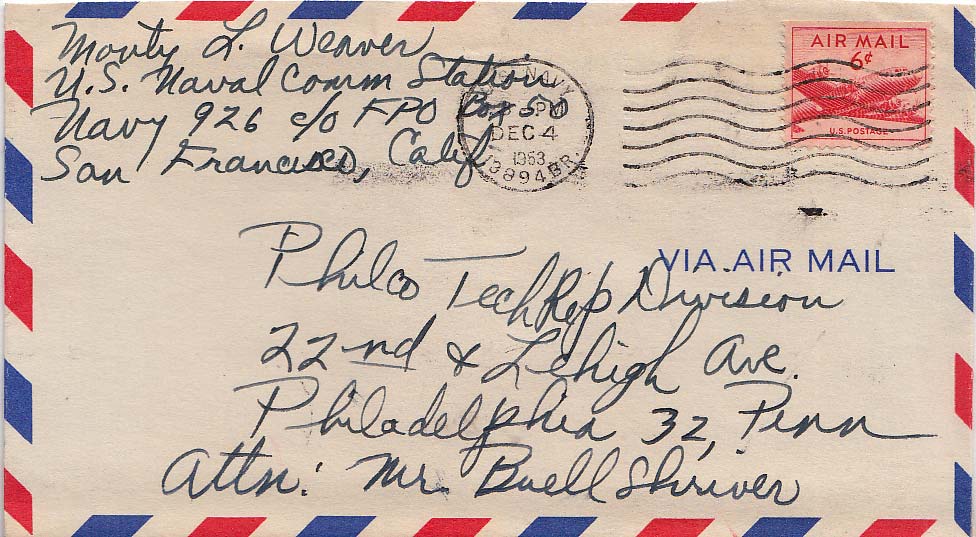 Monty L. Weaver
U.S. Naval Comm Station
Navy 926 c/o FPO Box 50
San Francisco, Calif
NAVY
PM
DEC 4
1953
3894 BR.
AIR MAIL
6¢
U.S. POSTAGE
VIA AIR MAIL
Philco TechRep Division
22nd & Lehigh Ave.
Philadelphia 32, Penn
Attn: Mr. Buell Shriver